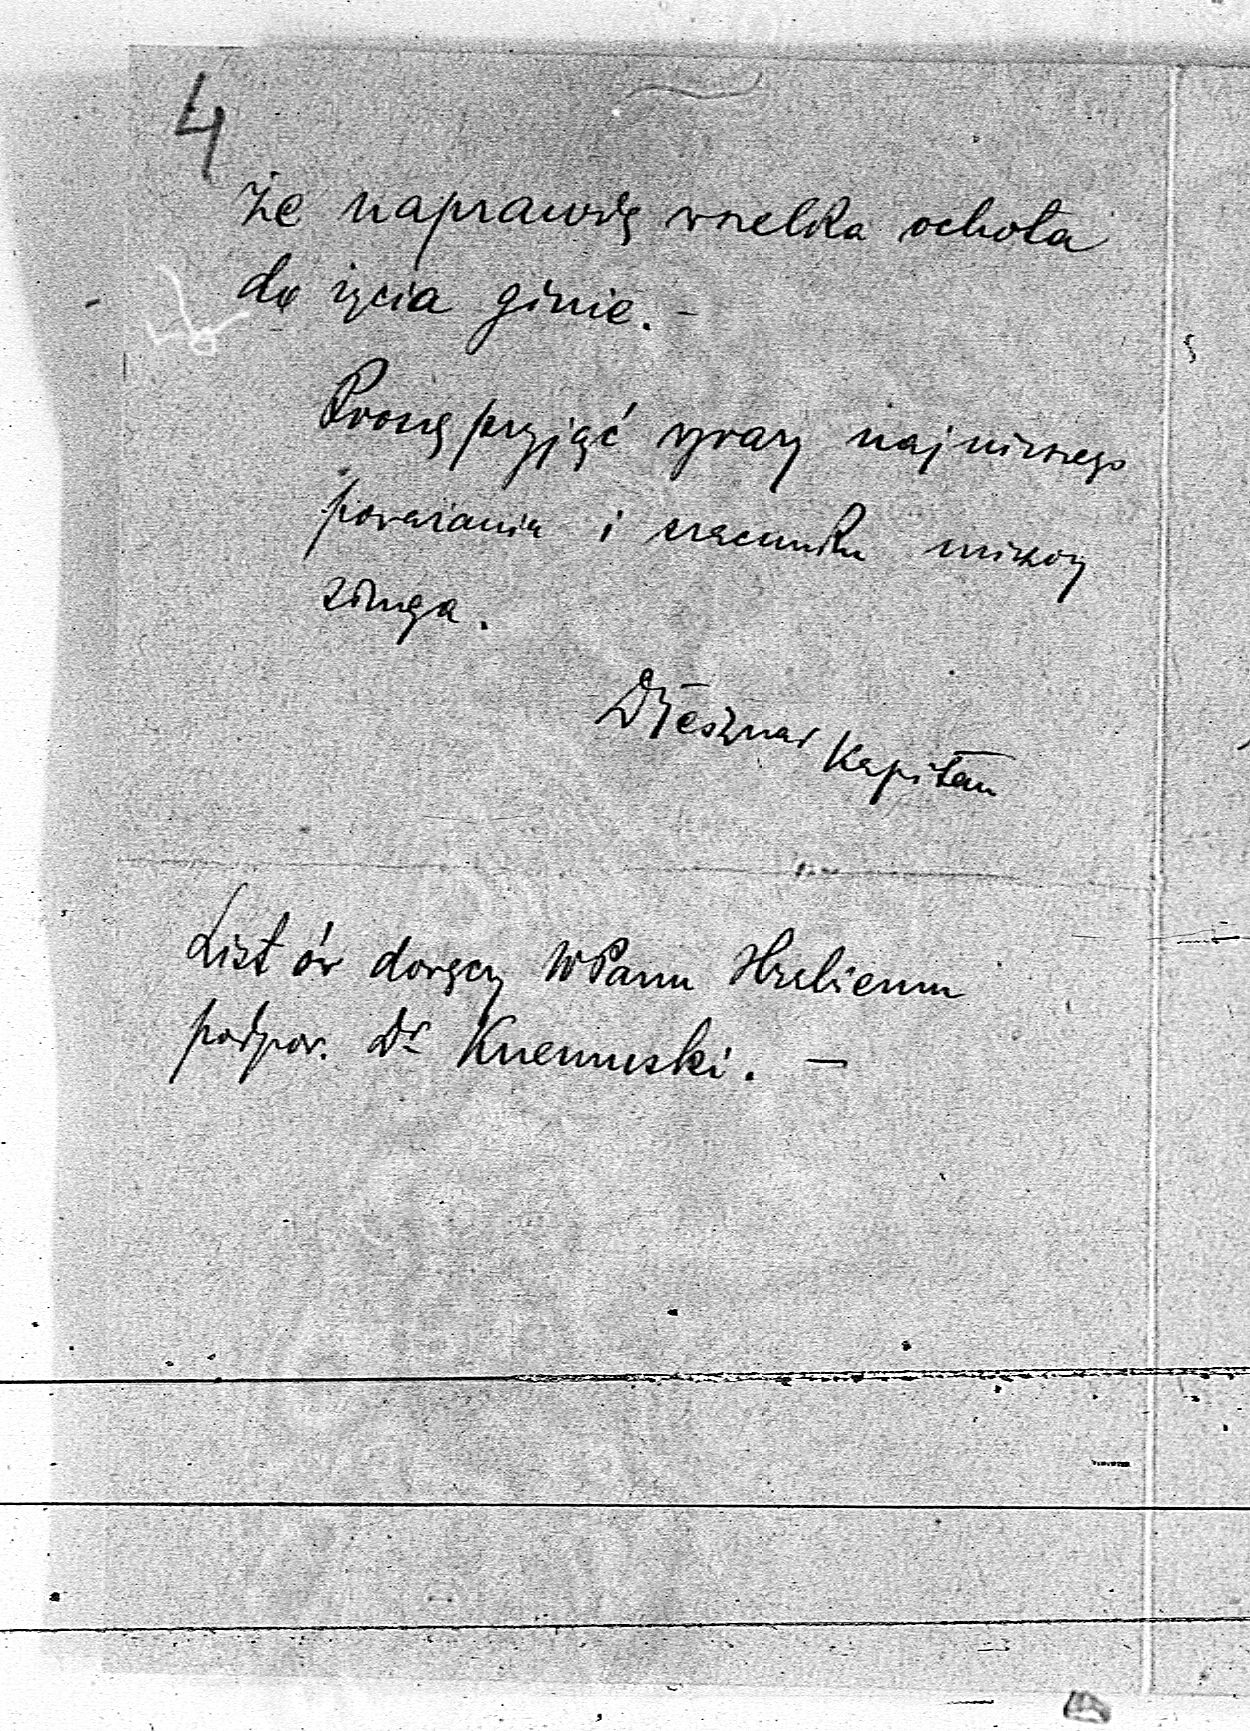 4
że naprawdę wszelka ochota
do życia ginie. -
Proszę przyjąć wyrazy najniższego
poważania i szacunku niższy
sługa.
Kapitan
List ów doręczy WPanu Hrabiemu
podpor. Dr